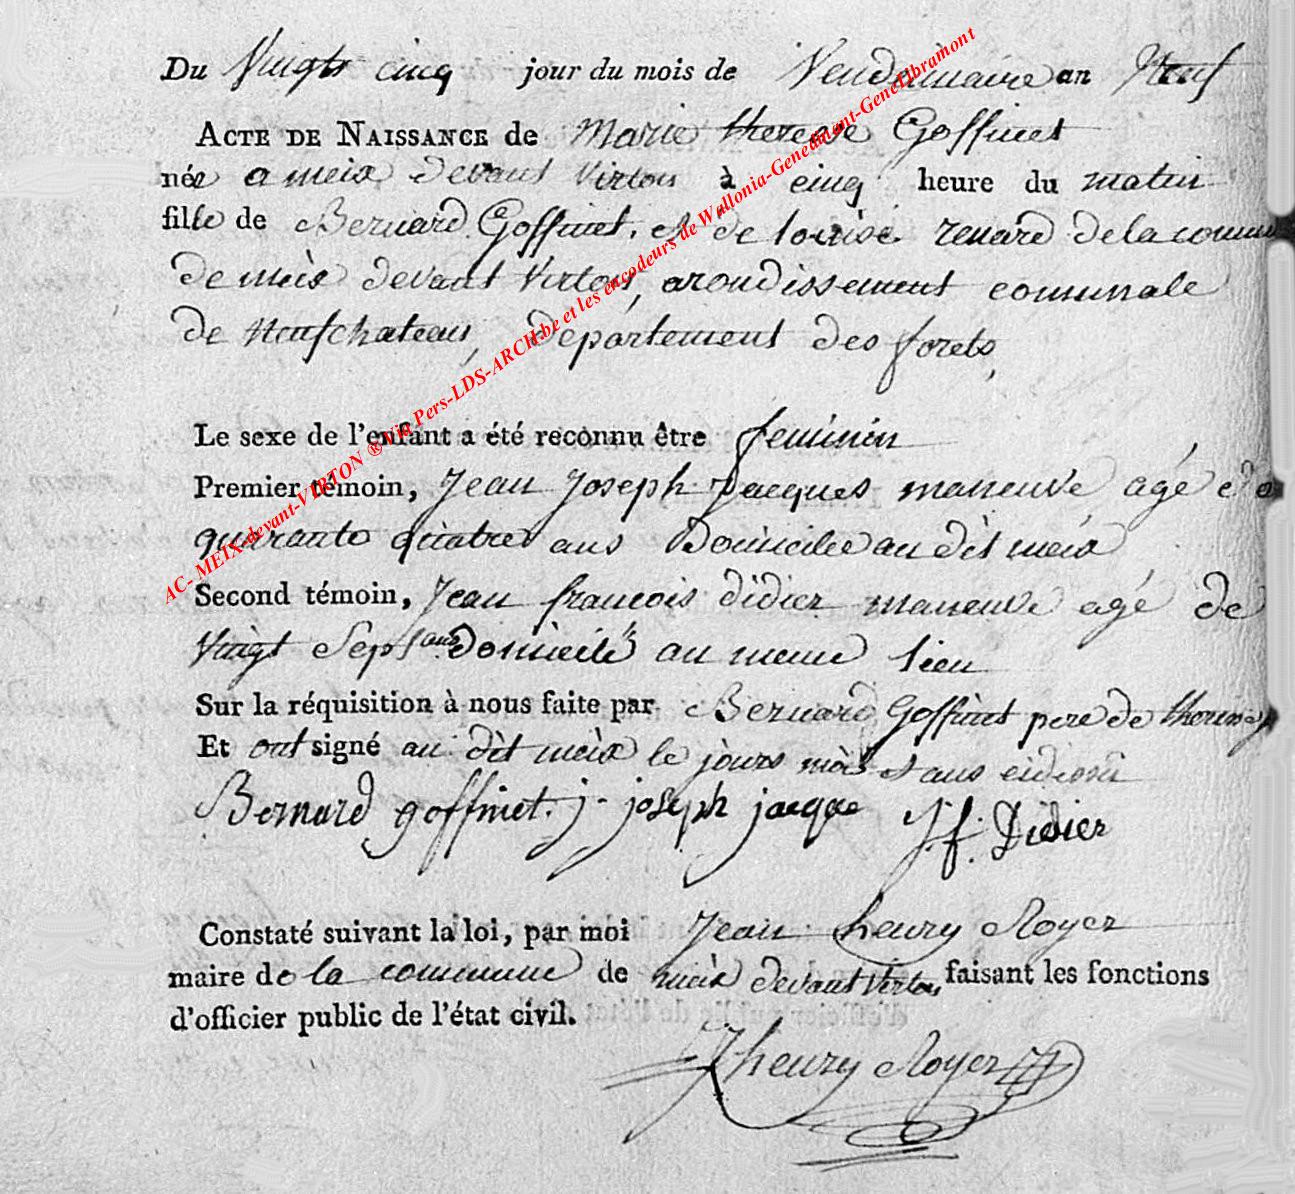 Du Vingt cinq jour du mois de Vendemiaire an Neuf
ACTE DE NAISSANCE de Marie therese Goffinet
née a meix devant Virton à cinq heure du matin
fille de Bernard Goffinet, et de louise renard de la commune
de meix devant Virton, arondissement comunale
de Neufchateau, département des forets,
Le sexe de l'enfant a été reconnu être feminin
Premier témoin, Jean Joseph Jacques maneuve agé de
quarante quatre ans Domicilie au dit meix
Second témoin, Jean françois didier maneuve agé de
Vingt Sept ans domicilé au meme lieu
Sur la réquisition à nous faite par Bernard Goffinet pere de
Et ont signé au dit meix le jours mois et ans
Bernard goffinet. j. joseph jacque J. f. Didier
Constaté suivant la loi, par moi Jean henry Royer
maire de la commune de meix devant Virton faisant les fonctions
d'officier public de l'état civil.
J henry Royer
AC- MEIX-devant-VIRTON ® Via Pers-LDS-ARCH.be et les encodeurs de Wallonia-Genedinant-Genelibramont